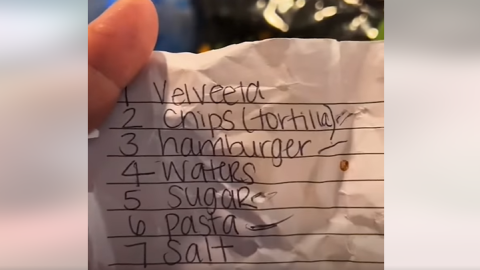 1 Velveeta
2 Chips (tortilla)
3 hamburger
4 waters
5 sugar
6 pasta
7 Salt